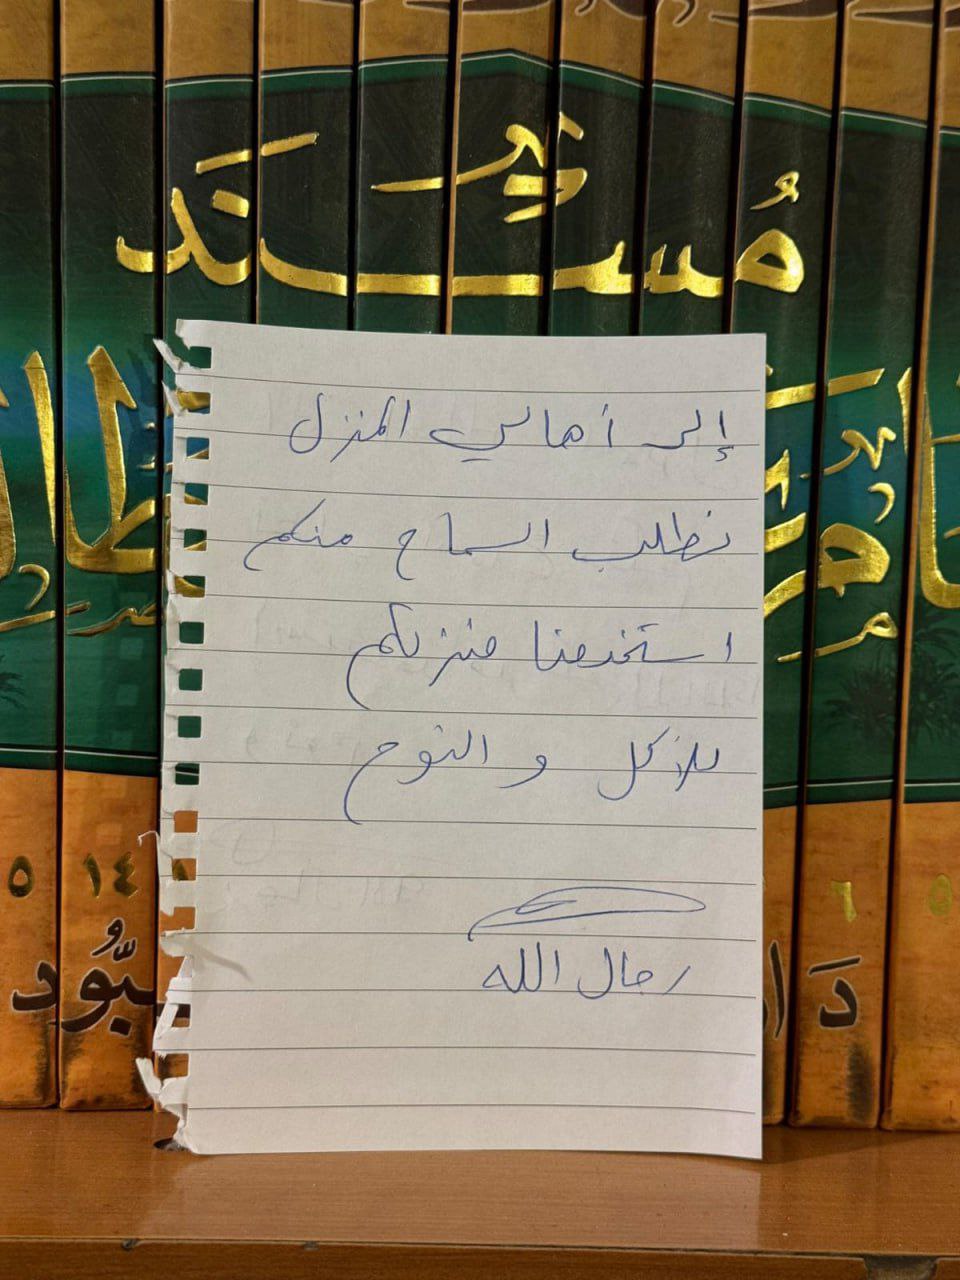 مُسْنَد
إلى أهالي المنزل
نطلب السماح منكم
استخدمنا منزلكم
للأكل و النوم
رجال الله
١٤
٦
٥
دَار